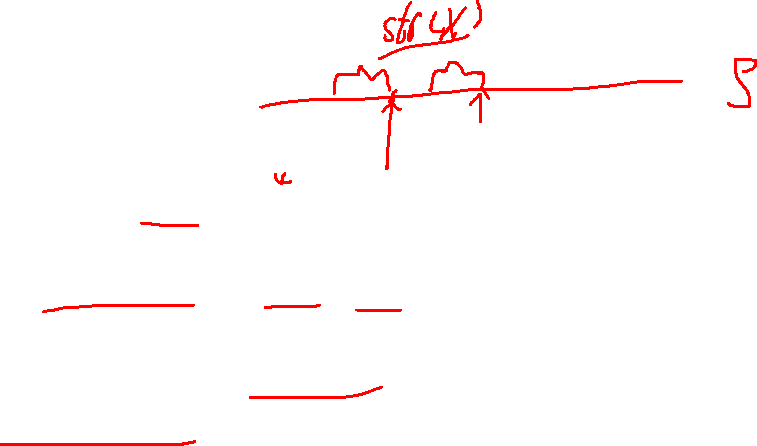 str(x)
S